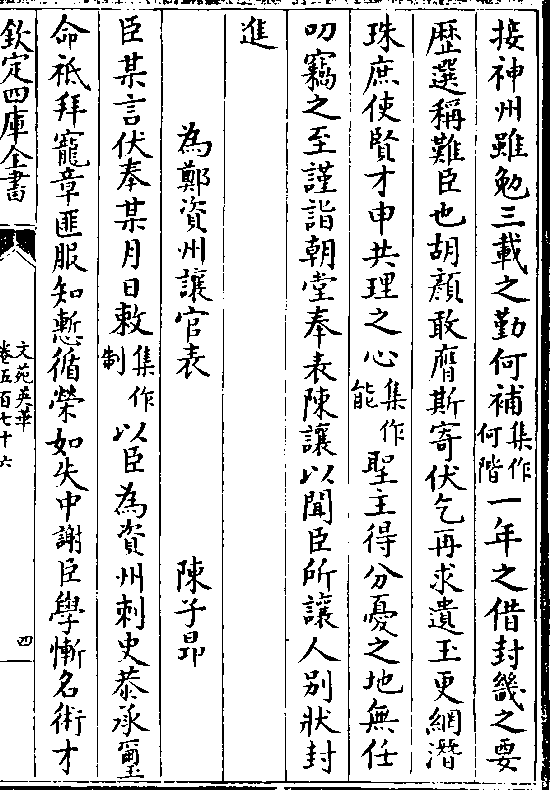 接神州雖勉三載之勤何補集作何階一年之借封畿之要
歷選稱難臣也胡顔敢膺斯寄伏乞再求遺玉更網潛
珠庶使賢才申共理之心集作能聖主得分憂之地無任
叨竊之至謹詣朝堂奉表陳讓以聞臣所讓人别狀封
進
為鄭資州讓官表 陳子昻
臣某言伏奉某月日敕集作制以臣為資州刺史恭承璽
命祇拜寵章匪服知慙循榮如失中謝臣學慚名術才
欽定四庫全書
文苑英華
卷五百七十六
四